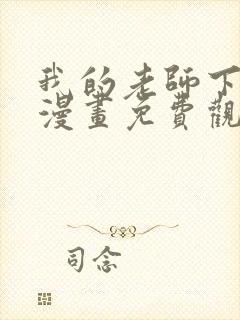 我的老師下
漫畫免費觀
司念